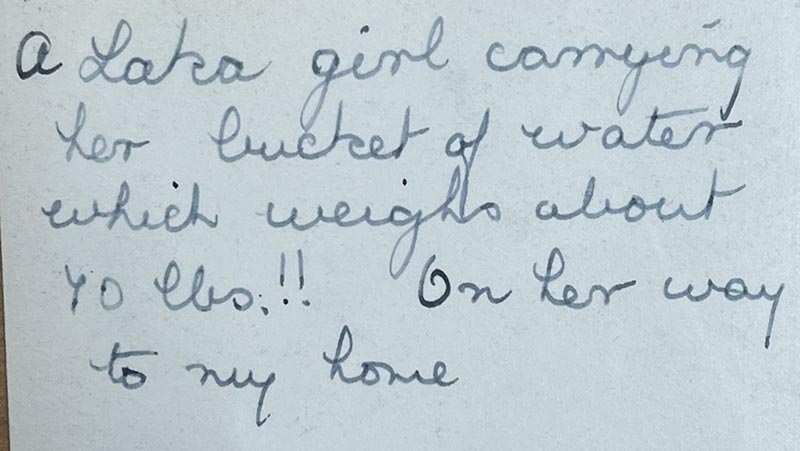 A Laka girl carrying
her bucket of water
which weighs about
40 lbs.!! On her way
to my home